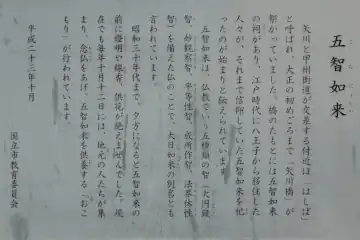 五智如来
矢川と甲州街道が交差する付近は「はしば」
と呼ばれ、大正の初めごろまで「矢川橋」が
架かっていました。橋のたもとには五智如来
の祠があり、江戸時代に八王子から移住した
人々が、それまで信仰していた五智如来を祀
ったのが始まりと伝えられています。
五智如来は、仏教でいう五種類の智(大円鏡
智、妙観察智、平等性智、成所作智、法界体性
智)を備えた仏のことで、大日如来の別名とも
言われています。
昭和三十年代まで、夕方になると五智如来の
前に燈明や線香、供花が絶えませんでした。現
在でも毎年十月十二日には、地元の人たちが集
まり、念仏をあげ、五智如来を供養する「おこ
もり」が行われています。
平成二十三年十月
国立市教育委員会